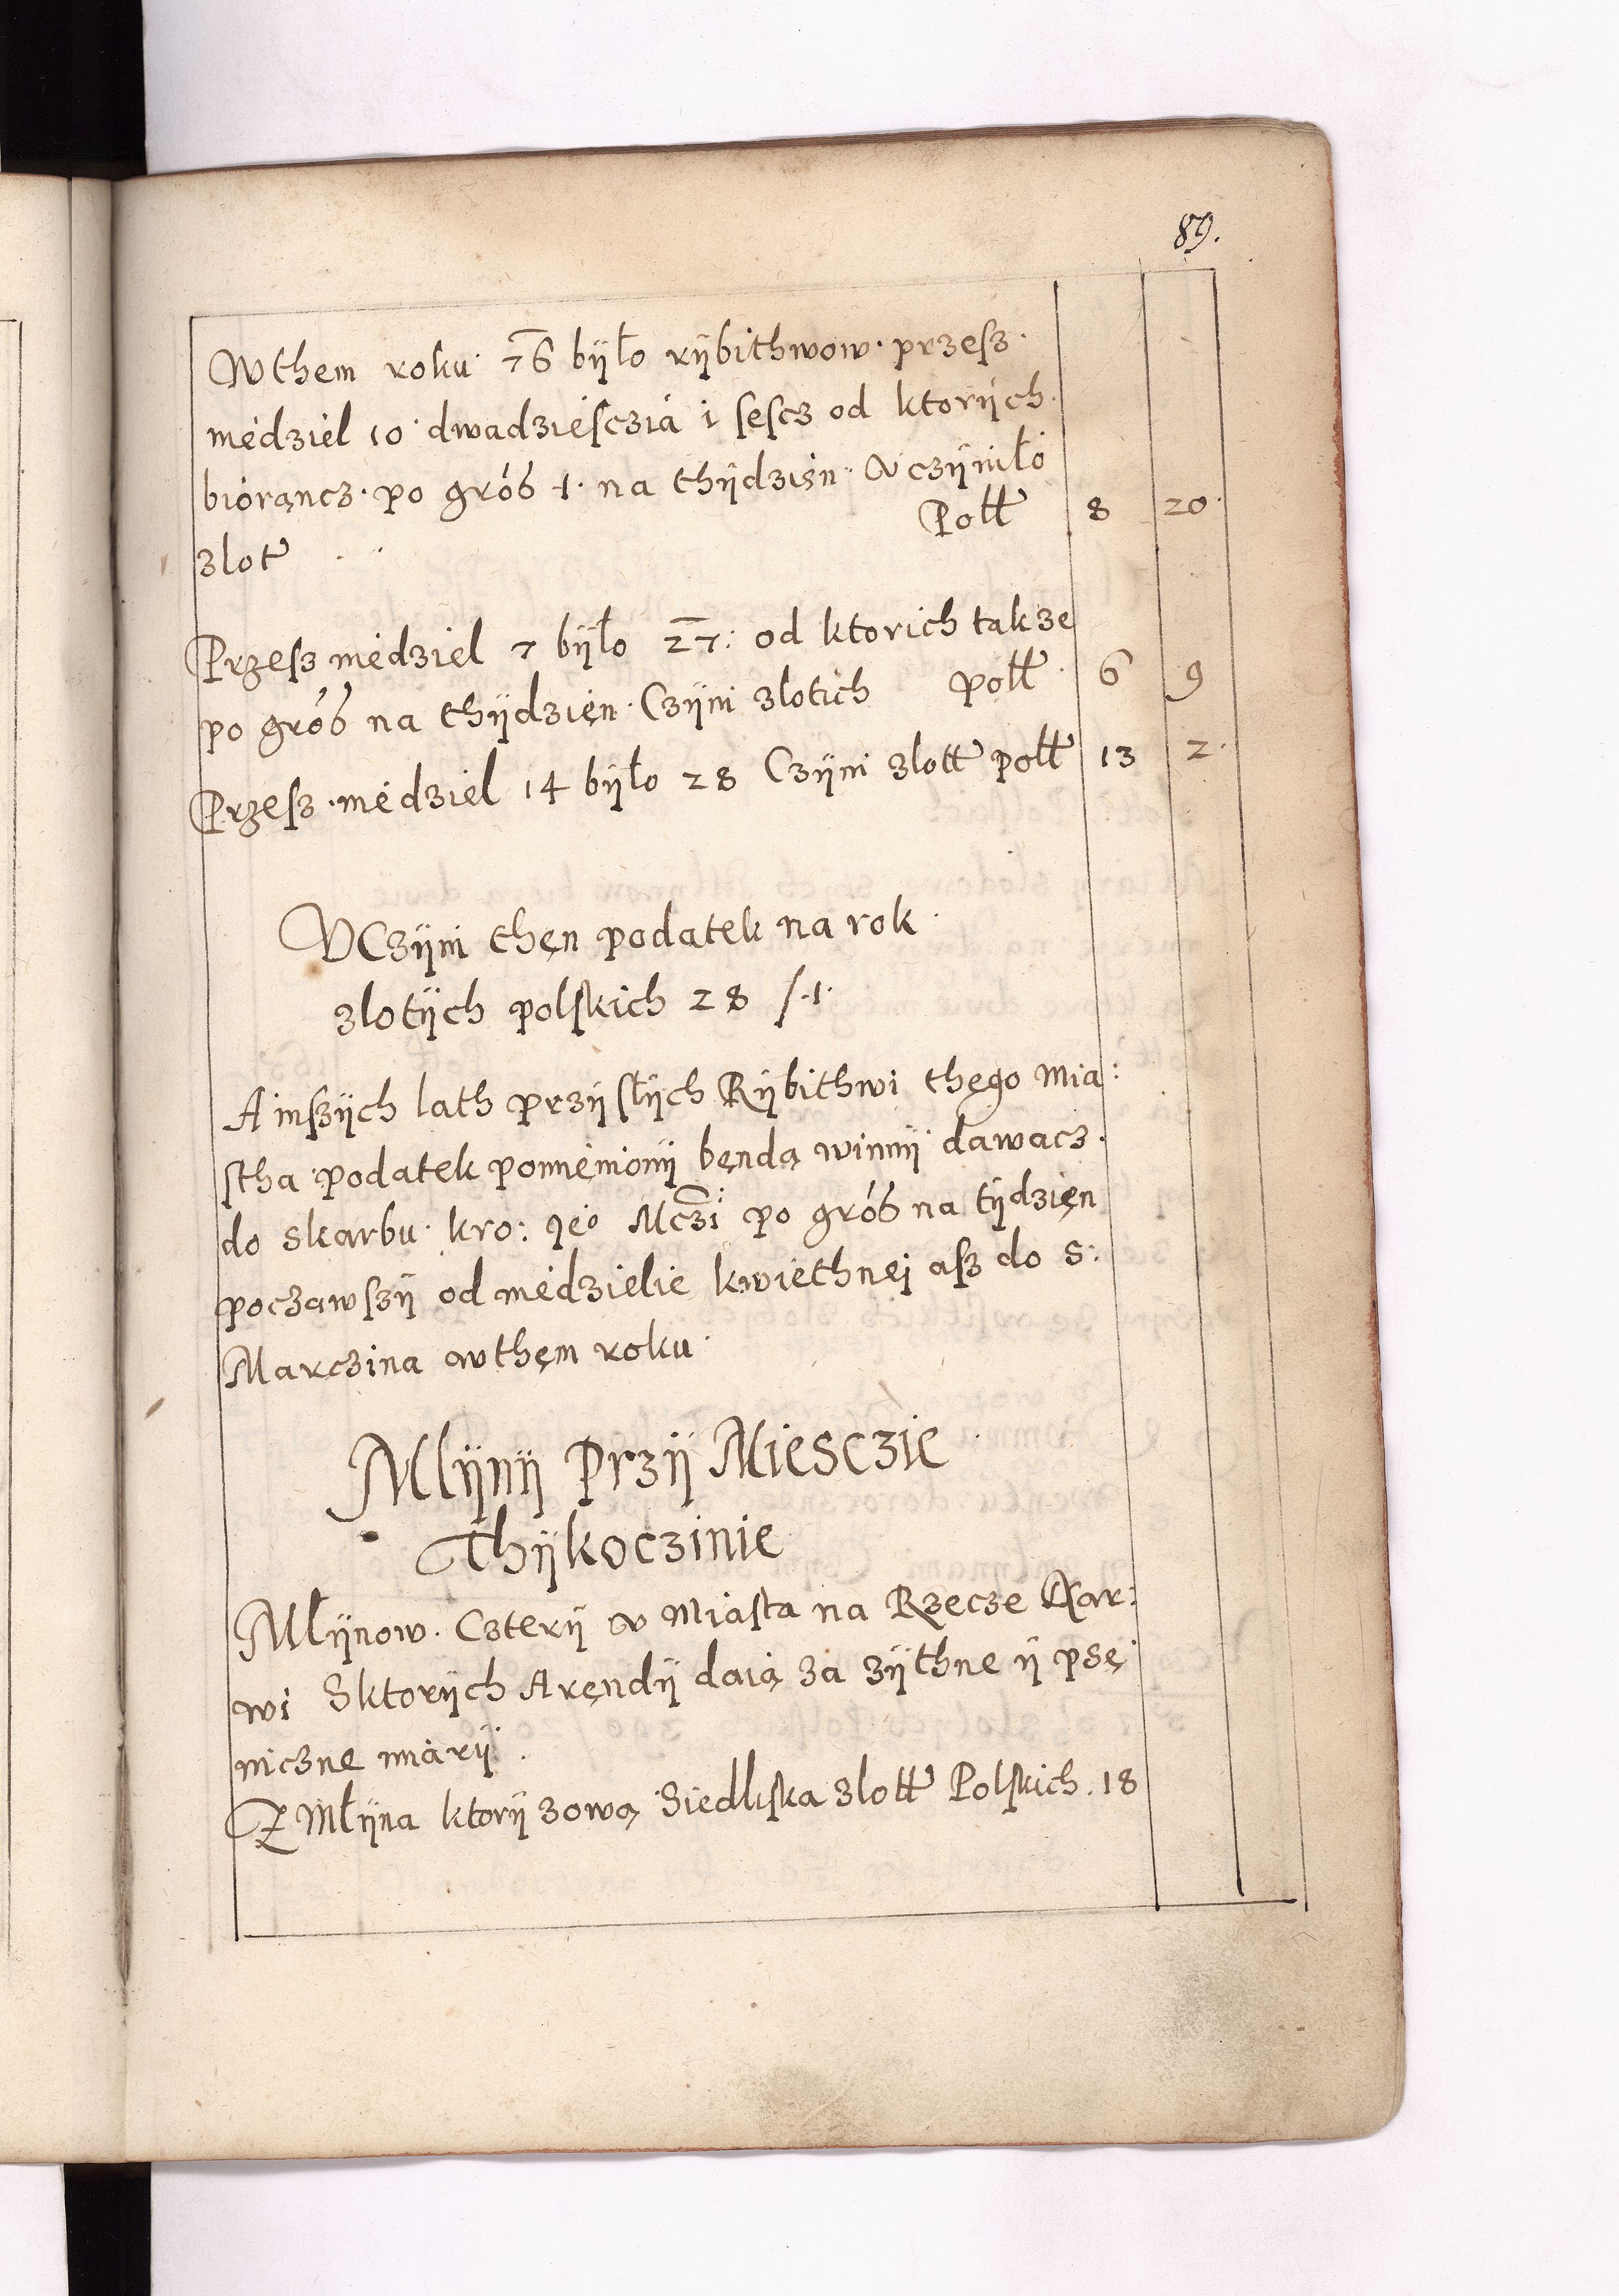 89.
Wthem roku 76 byĺo rybithwow. przesz.
niedziel 10 dwadziesczia i sescz od ktorych.
biorąncz. po grosz 1. na thydzień. Uczyniĺo
Poll 8 20
zlot
Przesz niedziel 7 byĺo 27: od ktorich takze
po grosz na thydzien. Czyni zlotich poll 6 9
Przesz niedziel 14 byĺo 28 Czyni zlott poll 13 2.
UCzyni then podatek na rok.
zlotych polskich 28 /.1.
A inszych lath przysĺych Rybithwi thego mia:
stha podatek pomieniony bęndą winny dawacz.
do skarbu kro: Je° Mczi po grosz na tydzięn
poczawszy od niedzielie kwiethnej asz do S:
Marczina wthęm roku
Mlyny Przy Miesczie
Thykoczinie
Mĺynow. Cztery u Miasta na Rzecze Nar:
wi Sktorych Arendy daią za zythne y psę
niczne miary.
Z Mĺyna ktory zową Siedliska zlott Polskich. 18